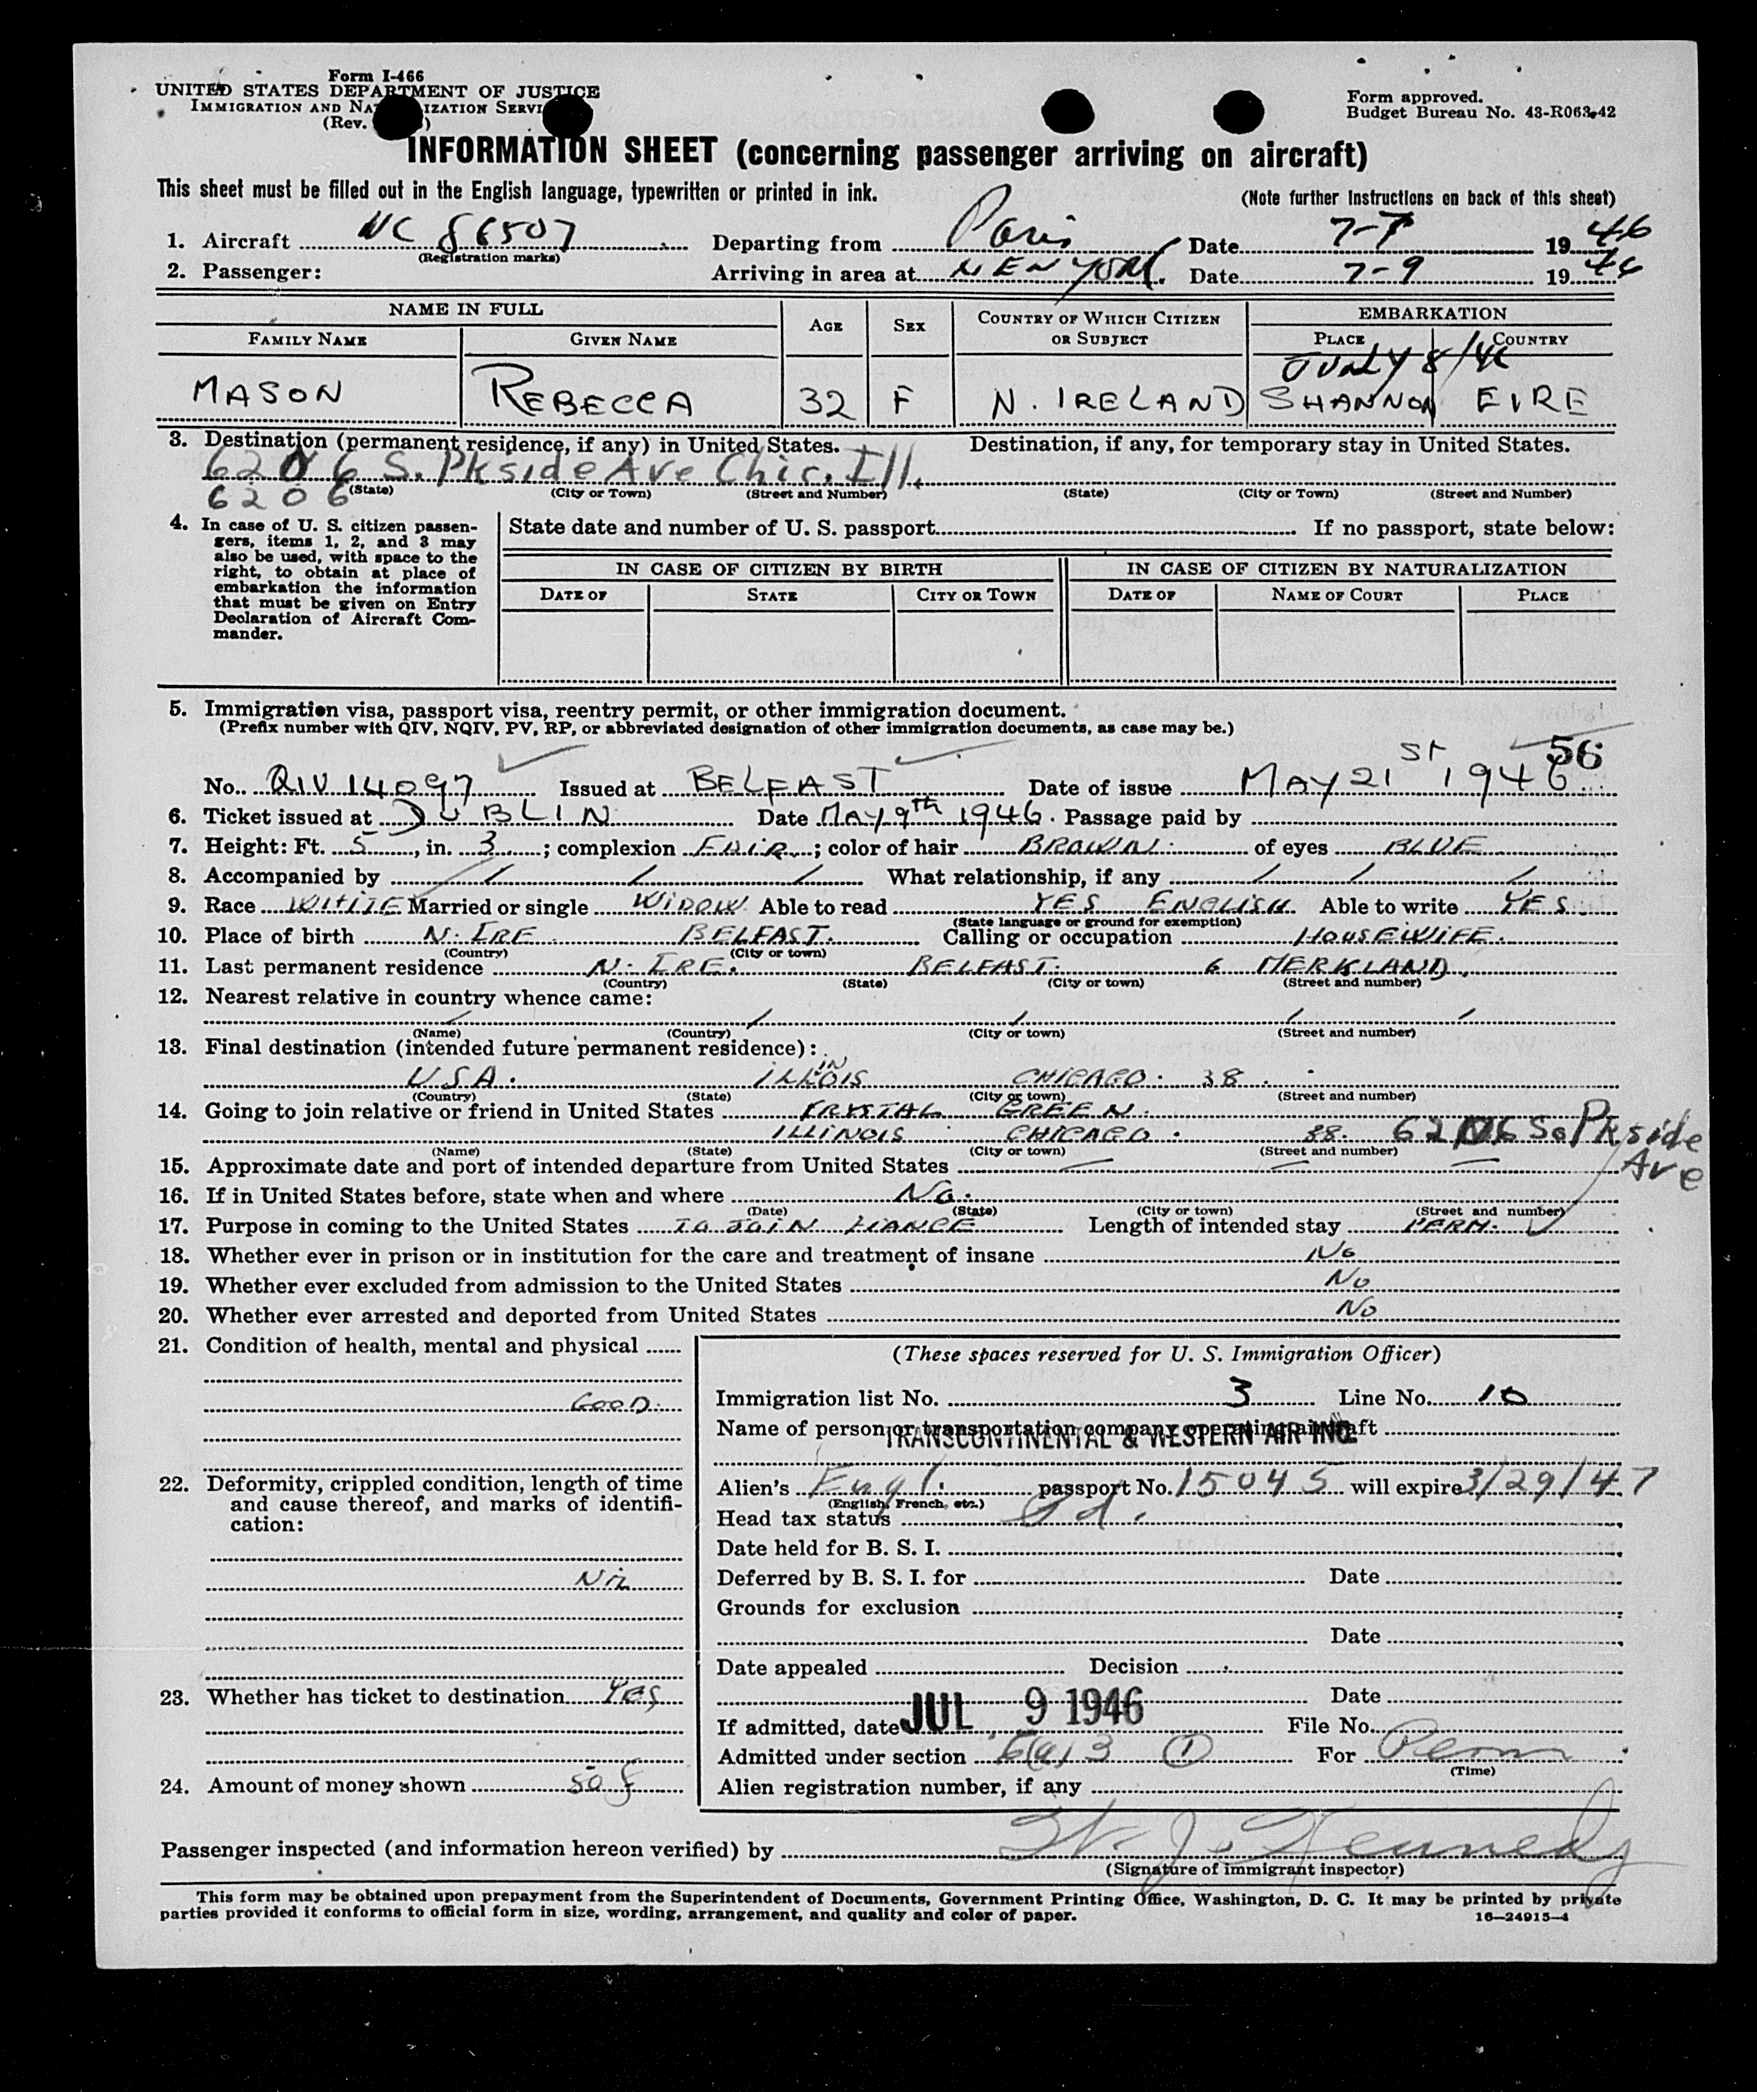 Form I-466
UNITED STATES DEPARTMENT OF JUSTICE
IMMIGRATION AND NA IZATION SERVI
(Rev. )
Form approved.
Budget Bureau No. 43-R063-42
INFORMATION SHEET (concerning passenger arriving on aircraft)
This sheet must be filled out in the English language, typewritten or printed in ink. (Note further instructions on back of this sheet)
1. Aircraft NC 86507 Departing from Paris Date 7-7 1946
(Registration marks)
2. Passenger: Arriving in area at NEW YORK. Date 7-9 1946
NAME IN FULL AGE SEX COUNTRY OF WHICH CITIZEN OR SUBJECT EMBARKATION
FAMILY NAME GIVEN NAME PLACE COUNTRY
JULY 8/46
MASON REBECCA 32 F N. IRELAND SHANNON EIRE
3. Destination (permanent residence, if any) in United States. Destination, if any, for temporary stay in United States.
6206 S. Pkside Ave Chic. Ill.
6206 (State) (City or Town) (Street and Number) (State) (City or Town) (Street and Number)
4. In case of U. S. citizen passen-
gers, items 1, 2, and 3 may
also be used, with space to the
right, to obtain at place of
embarkation the information
that must be given on Entry
Declaration of Aircraft Com-
mander.
State date and number of U. S. passport If no passport, state below:
IN CASE OF CITIZEN BY BIRTH IN CASE OF CITIZEN BY NATURALIZATION
DATE OF STATE CITY OR TOWN DATE OF NAME OF COURT PLACE
5. Immigration visa, passport visa, reentry permit, or other immigration document.
(Prefix number with QIV, NQIV, PV, RP, or abbreviated designation of other immigration documents, as case may be.)
56
No. QIV 14097 Issued at BELFAST Date of issue MAY 21ST 1946
6. Ticket issued at DUBLIN Date MAY 9th 1946. Passage paid by
7. Height: Ft. 5, in. 3; complexion FAIR; color of hair BROWN. of eyes BLUE
8. Accompanied by / / / What relationship, if any / / /
9. Race WHITE Married or single WIDOW. Able to read YES ENGLISH. Able to write YES
(State language or ground for exemption)
10. Place of birth N. IRE. BELFAST. Calling or occupation HOUSEWIFE.
(Country) (City or town)
11. Last permanent residence N. IRE. BELFAST. 6 MERKLAND.
(Country) (State) (City or town) (Street and number)
12. Nearest relative in country whence came:
/ / / / /
(Name) (Country) (City or town) (Street and number)
13. Final destination (intended future permanent residence):
IN
USA. ILLOIS CHICAGO. 38.
(Country) (State) (City or town) (Street and number)
14. Going to join relative or friend in United States GREEN.
ILLINOIS CHICAGO. 38. 6206 So Pkside
Ave
(Name) (State) (City or town) (Street and number)
15. Approximate date and port of intended departure from United States — — —
16. If in United States before, state when and where No.
(Date) (State) (City or town) (Street and number)
17. Purpose in coming to the United States TO JOIN FIANCE Length of intended stay PERM.
18. Whether ever in prison or in institution for the care and treatment of insane No
19. Whether ever excluded from admission to the United States No
20. Whether ever arrested and deported from United States No
21. Condition of health, mental and physical
GOOD.
22. Deformity, crippled condition, length of time
and cause thereof, and marks of identifi-
cation:
NIL
23. Whether has ticket to destination Yes
24. Amount of money shown 50 £
(These spaces reserved for U. S. Immigration Officer)
Immigration list No. 3 Line No. 10
Name of person or transportation company operating aircraft
TRANSCONTINENTAL & WESTERN AIR INC.
Alien's Engl. passport No. 15045 will expire 3/29/47
(English, French, etc.)
Head tax status Pd.
Date held for B. S. I.
Deferred by B. S. I. for Date
Grounds for exclusion
Date
Date appealed Decision
Date
If admitted, date JUL 9 1946 File No.
Admitted under section 6(a)3 (1) For Perm
(Time)
Alien registration number, if any
Passenger inspected (and information hereon verified) by W. J. Kennedy
(Signature of immigrant inspector)
This form may be obtained upon prepayment from the Superintendent of Documents, Government Printing Office, Washington, D. C. It may be printed by private
parties provided it conforms to official form in size, wording, arrangement, and quality and color of paper. 16—24915-4